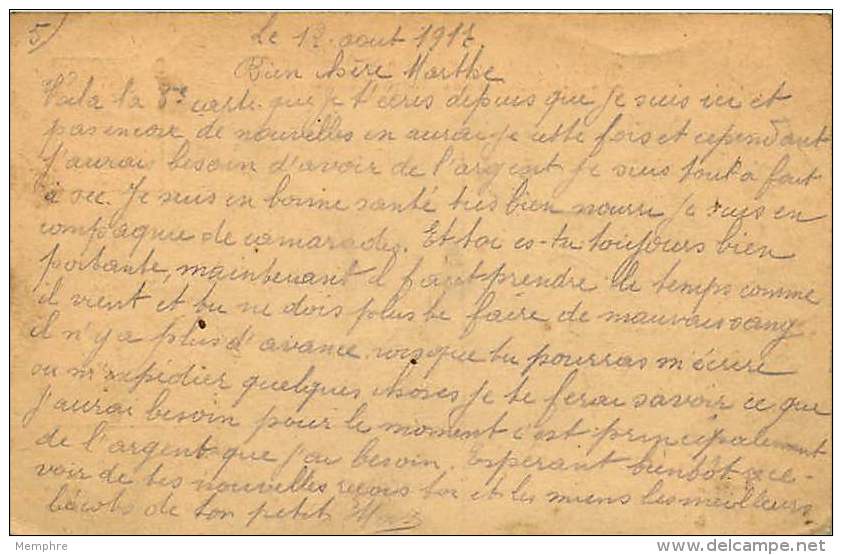 5)
Le 12 aout 1917
Bien chère Marthe
Voila la 5e carte que je t'écris depuis que je suis ici et
pas encore de nouvelles en aurai je cette fois et cependant
j'aurais besoin d'avoir de l'argent je suis tout a fait
a sec. Je suis en bonne santé très bien nourri je suis en
compagnie de camarades. Et toi es-tu toujours bien
portante, maintenant il faut prendre le temps comme
il vient et tu ne dois plus te faire de mauvais sang
il n'y a plus d'avance lorsque tu pourras m'écrire
ou m'expédier quelques choses je te ferai savoir ce que
j'aurai besoin pour le moment c'est principalement
de l'argent que j'ai besoin. Esperant bientôt rece-
voir de tes nouvelles reçois toi et les miens les meilleurs
bécots de ton petit
Memphre
delcampe.net